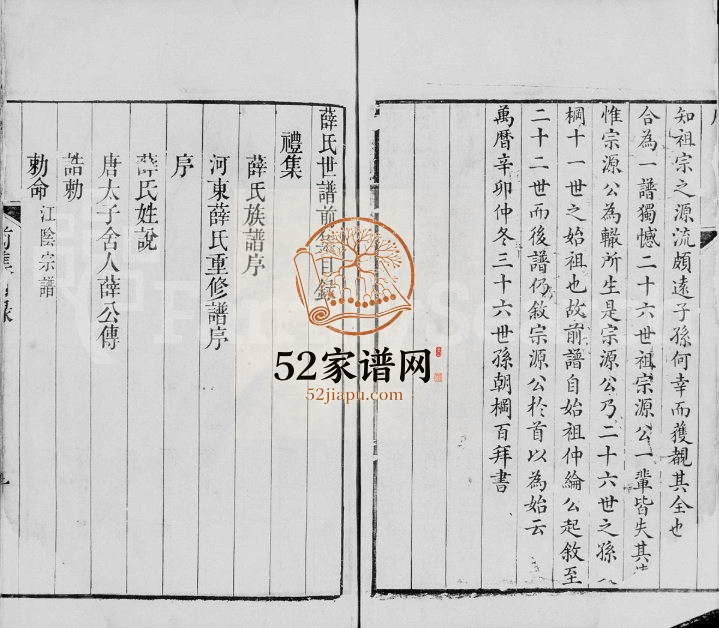 知祖宗之源流頗遠子孫何幸而獲覩其全也
合為一譜獨憾二十六世祖宗源公一輩皆失其
惟宗源公為轍所生是宗源公乃二十六世之孫
桐十一世之始祖也故前譜自始祖仲綸公起敘至
二十二世而後譜仍敘宗源公於首以為始云
萬曆辛卯仲冬三十六世孫朝棡百拜書
薛氏世譜前集目錄
禮集
薛氏族譜序
河東薛氏重修譜序
序
薛氏姓說
唐太子舍人薛公傳
誥勅
勅命 江陰宗譜
前集目錄
52家谱网
52jiapu.com